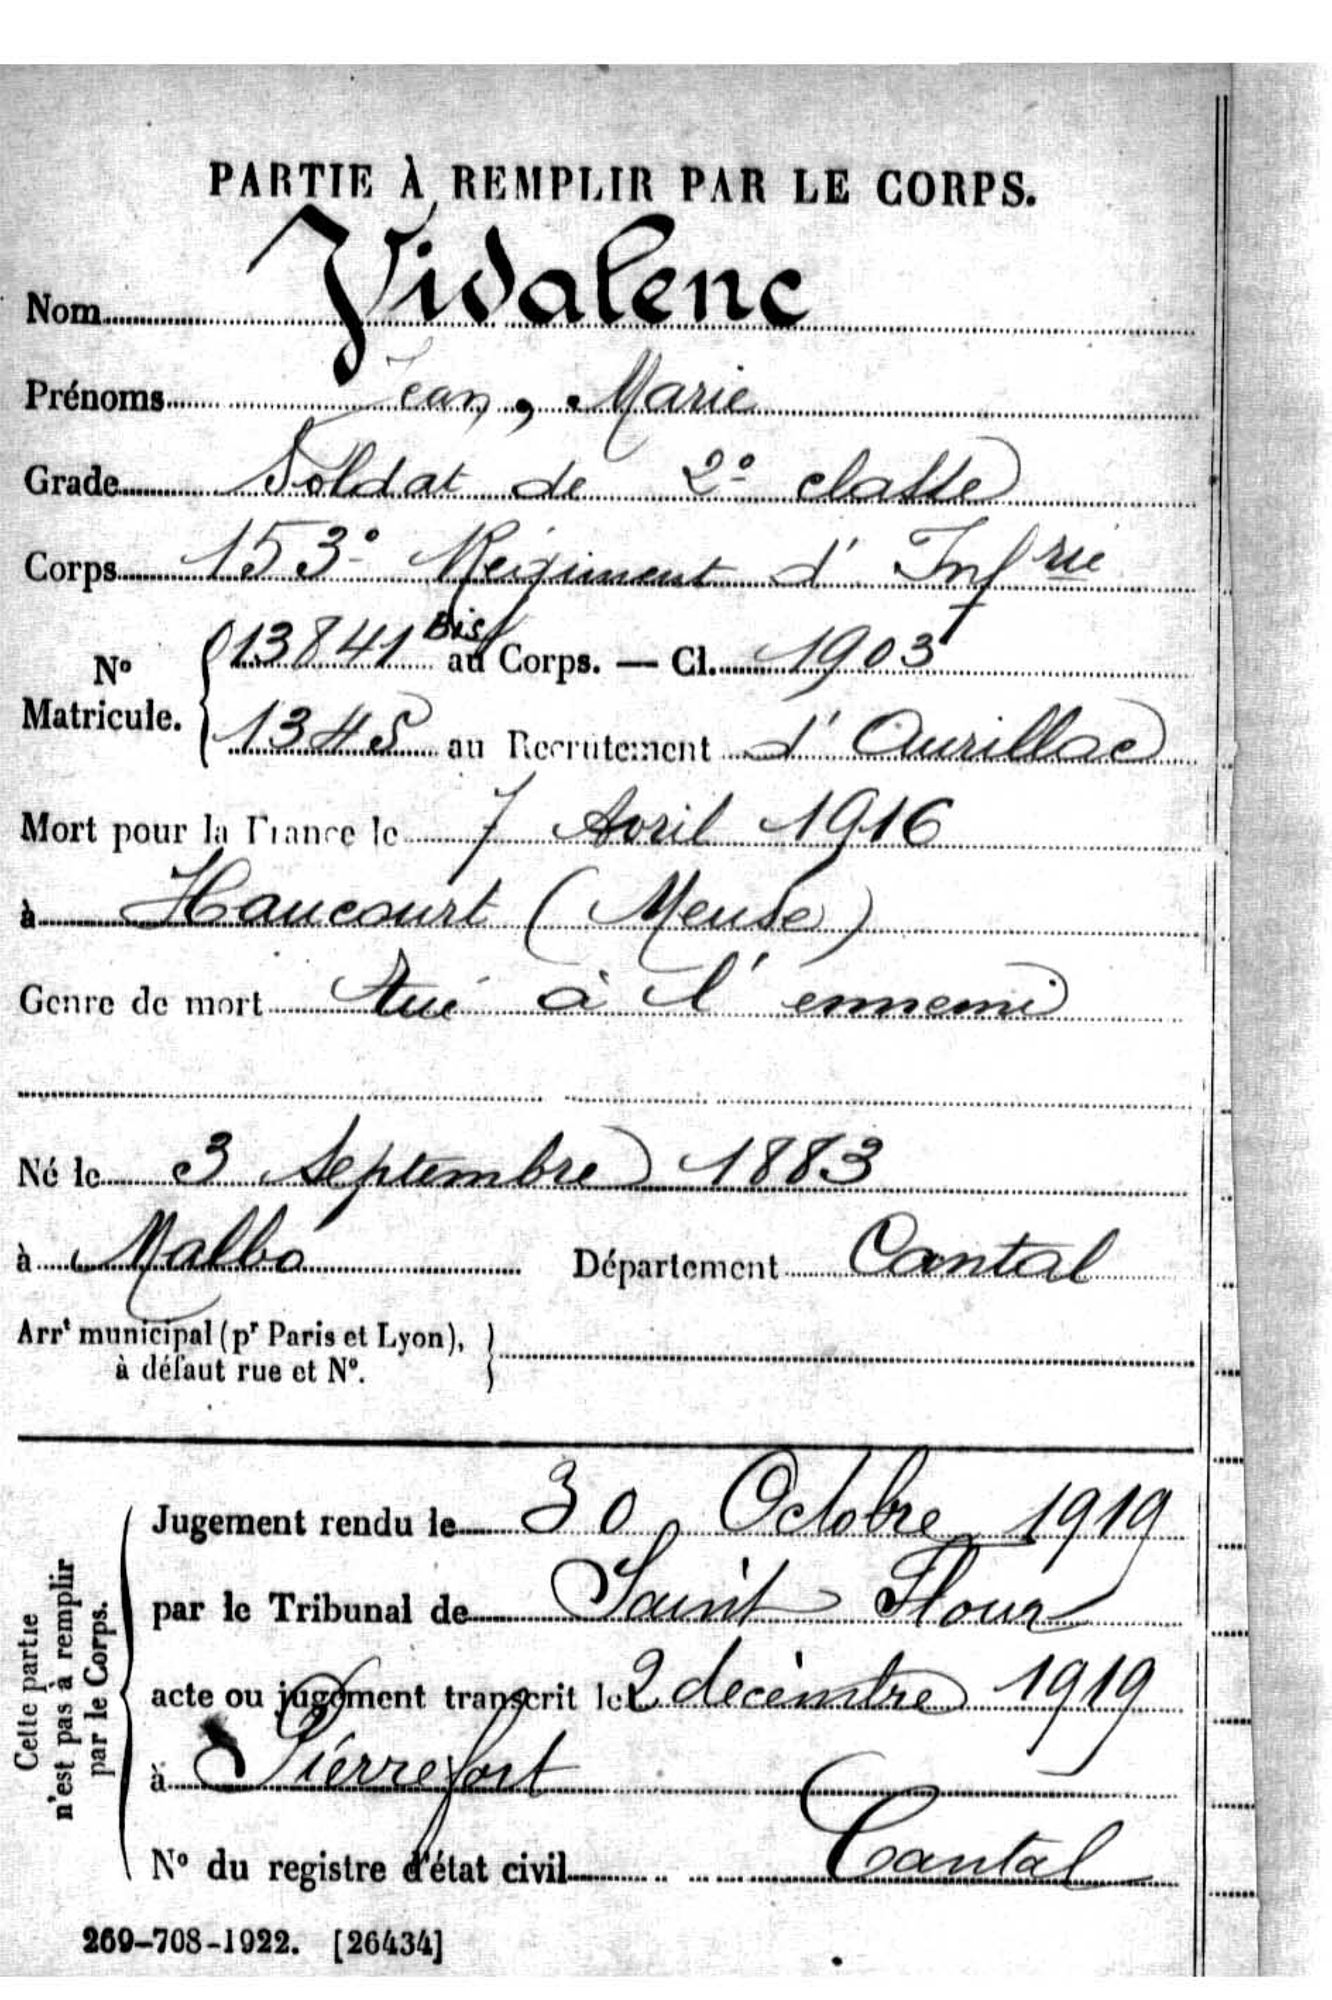 PARTIE À REMPLIR PAR LE CORPS.
Nom Vidalenc
Prénoms Jean, Marie
Grade Soldat de 2e classe
Corps 153e Régiment d'Infrie
N° Matricule. { 13841 Bis au Corps. — Cl. 1903
1345 au Recrutement d'Aurillac
Mort pour la France le 7 Avril 1916
à Haucourt (Meuse)
Genre de mort tué à l'ennemi
Né le 3 Septembre 1883
à Malbo Département Cantal
Arrt municipal (pr Paris et Lyon),
à défaut rue et N°.
Cette partie
n'est pas à remplir
par le Corps.
Jugement rendu le 30 Octobre 1919
par le Tribunal de Saint Flour
acte ou jugement transcrit le 2 décembre 1919
à Pierrefort
N° du registre d'état civil Cantal
269-708-1922. [26434]